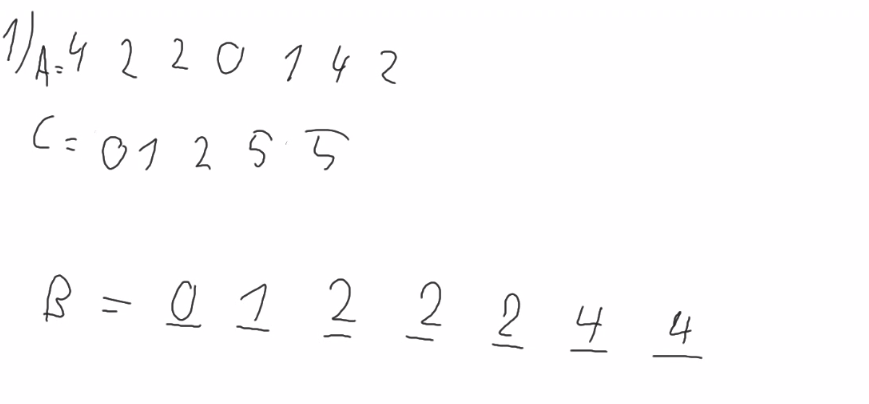 1) A= 4 2 2 0 1 4 2
C = 0 1 2 5 5
B = 0 1 2 2 2 4 4